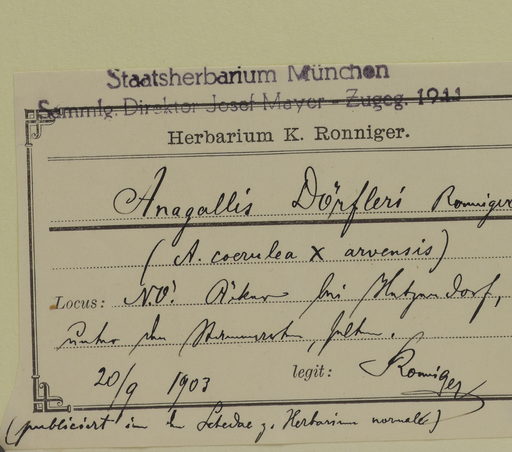 Staatsherbarium München
Sammlg. Direktor Josef Mayer - Zugeg. 1911
Herbarium K. Ronniger.
Anagallis Dörfleri Ronniger
(A. coerulea x arvensis)
Locus: N.Ö. bei
unter den
20/9 1903 legit: Ronniger
(publiciert in den Schedae z. Herbarium normale)